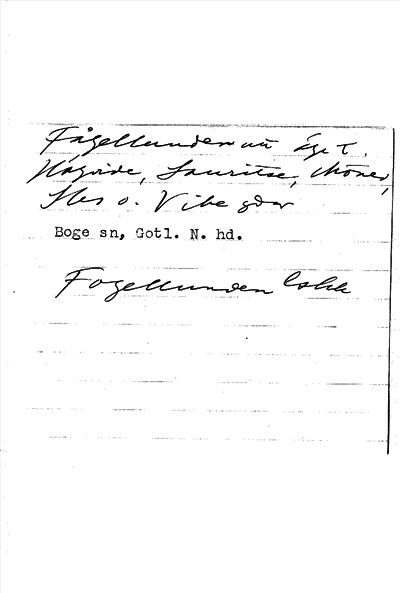 Fågellunden äg t.
Hägvide, Lauritse, Möner,
Iles o. Vike gdar
Boge sn, Gotl. N. hd.
Fogellunden